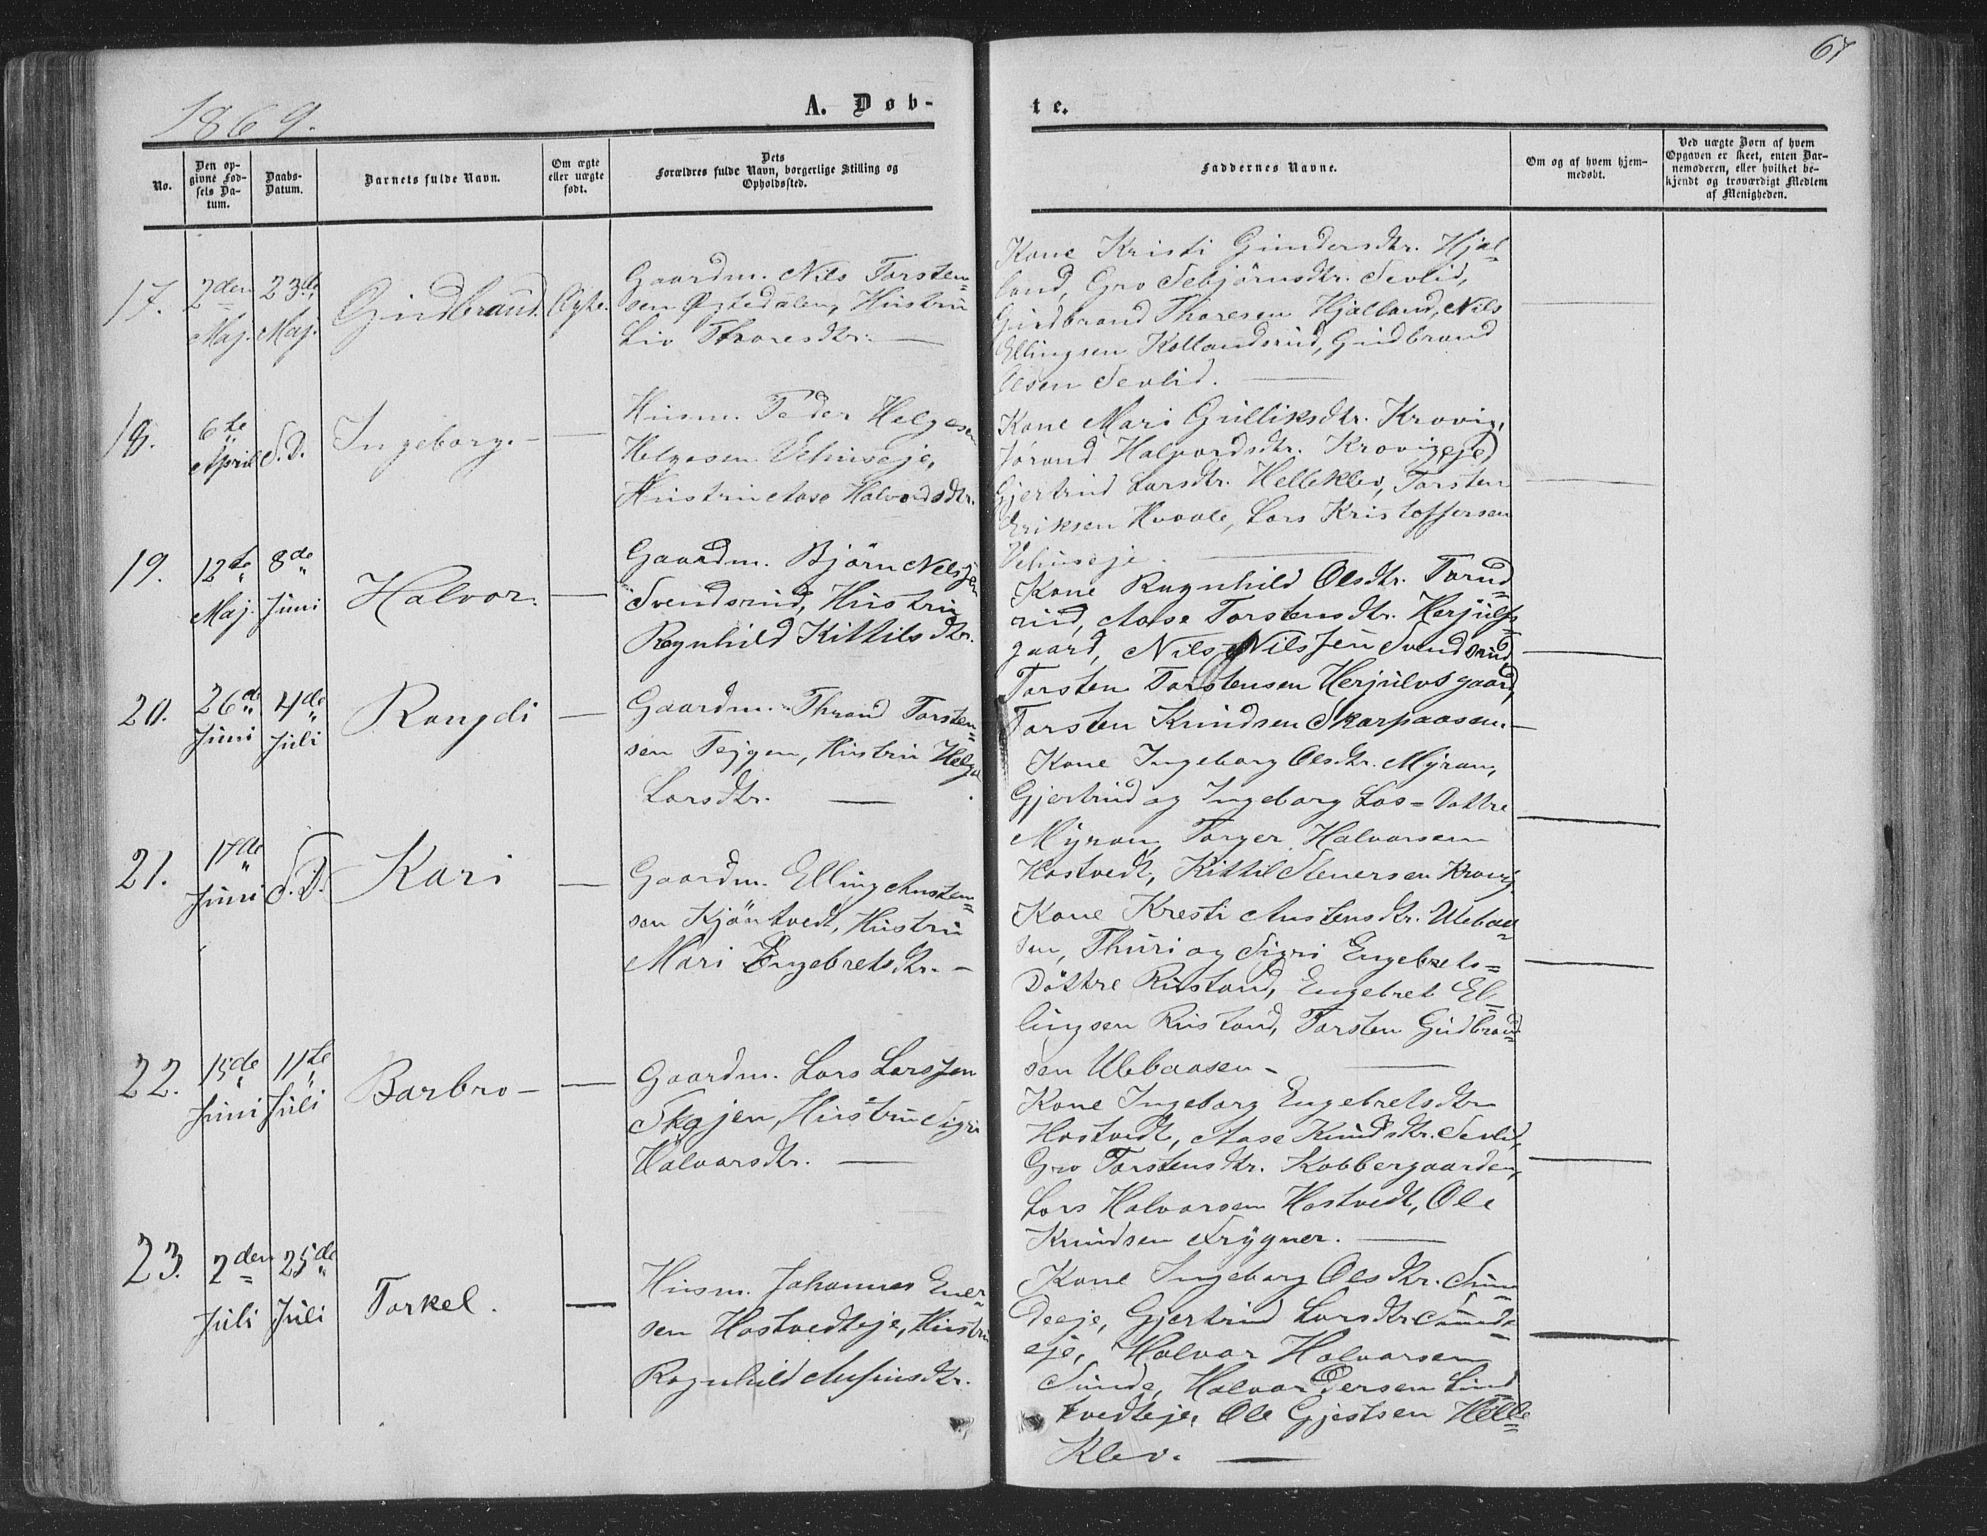 1869.
A. Døb-
te.
67
No.
Den op-
givne Fød-
sels Da-
tum.
Daabs-
Datum.
Barnets fulde Navn.
Om ægte
eller uægte
født.
Dets
Forældres fulde Navn, borgerlige Stilling og
Opholdssted.
Faddernes Navne.
Om og af hvem hjem-
medøbt.
Ved uægte Børn af hvem
Opgaven er skeet, enten Bar-
nemoderen, eller hvilket be-
kjendt og troværdigt Medlem
af Menigheden.
17.
2den
Maj.
23de
Maj.
Gudbrand.
Ægte.
Gaardm. Nils Torsten-
sen Østedalen, Hustru
Liv Thoresdtr. —
Kone Kristi Gundersdtr. Hjal-
land, Gro Sebjörnsdtr. Sevlid,
Gudbrand Thoresen Hjalland, Nils
Ellingsen Kollandsrud, Gudbrand
Olsen Sevlid. —
18.
6te
April
S. D.
Ingeborg. —
Husm. Peder Helgesen
Helgesen Vehuseje,
Hustru Aase Halvordsdtr.
Kone Mari Gulliksdtr. Krovig,
Jörand Halvordsdtr. Krovigeje,
Gjertrud Larsdtr. Helleklev, Torsten
Eriksen Hvaale, Lars Kristoffersen
Vehuseje. —
19.
12te
Maj.
8de
Juni
Halvor.
Gaardm. Björn Nelsjen
Svendsrud, Hustru
Ragnhild Kittilsdtr.
Kone Ragnhild Olsdtr. Torud-
rud, Aase Torstensdtr. Herjulfs-
gaard, Nils Nilssen Svendsrud,
Torsten Torstensen Herjulvsgaard,
Torsten Knudsen Skarpaasen. —
20.
26de
Juni
4de
Juli
Rangdi
Gaardm. Thrond Torsten-
sen Tejgen, Hustru Helga
Larsdtr. —
Kone Ingeborg Olsdtr. Myran,
Gjertrud og Ingeborg Las-Dottre
Myran, Torger Halvorsen
Hostvedt, Kittil Stenersen Krovig
21.
17de
Juni
S. D.
Kari
Gaardm. Elling Austen-
sen Kjöntvedt, Hustru
Mari Engebretsdtr. —
Kone Kresti Austensdtr. Ulebaa-
sen, Thuri og Sigri Engebrets-
Döttre Rustand, Engebret El-
lingsen Rustand, Torsten Gudbrand-
sen Ulebaasen —
22.
15de
Juni
11te
Juli
Barbro —
Gaardm. Lars Larsjen
Skajen, Hustru Sigri
Halvorsdtr. —
Kone Ingeborg Engebretsdtr
Hostvedt, Aase Knudsdtr. Sevlid,
Gro Torstensdtr. Kobbergaarden,
Lars Halvorsen Hostvedt, Ole
Knudsen Frygner. —
23.
2den
Juli
25de
Juli
Torkel.
Husm. Johannes Ener-
sen Hostvedteje, Hustru
Ragnhild Aufinsdtr.
Kone Ingeborg Olsdtr. Sun-
deeje, Gjertrud Larsdtr Sunde-
eje, Halvor Halvorsen
Sunde, Halvor Persen Lind-
tvedteje, Ole Gjestsen Helle-
Klev. —